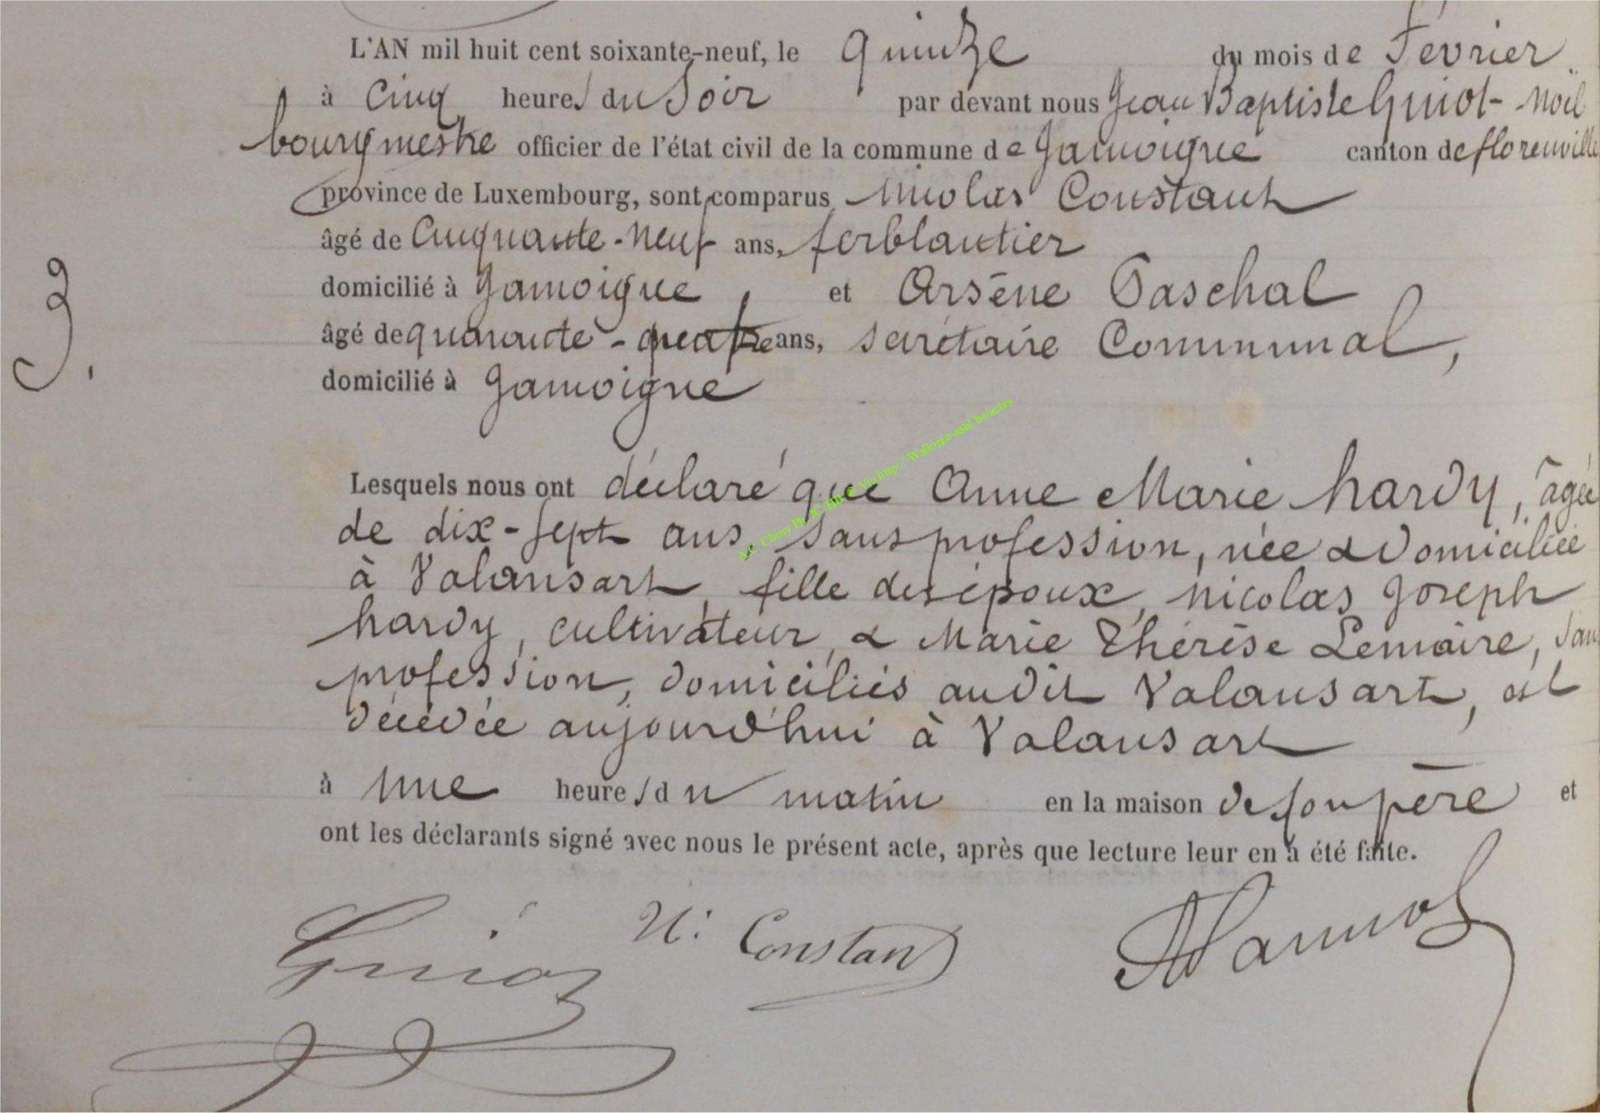 L'AN mil huit cent soixante-neuf, le quinze du mois de Février
à cinq heures du soir par devant nous Jean Baptiste Guiot-Noël
bourgmestre officier de l'état civil de la commune de Jamoigne canton de florenville
province de Luxembourg, sont comparus Nicolas Constant
âgé de cinquante-neuf ans, ferblantier
domicilié à Jamoigne, et Arsène Paschal
3.
âgé de quarante-quatre ans, secrétaire Communal,
domicilié à Jamoigne
Lesquels nous ont déclaré que Anne Marie hardy, âgée
de dix-sept ans, sans profession, née & domiciliée
à Valansart, fille des époux, Nicolas Joseph
hardy, cultivateur, & Marie Thérèse Lemaire, sans
profession, domiciliés audit Valansart, est
décédée aujourd'hui à Valansart
à une heures du matin en la maison de son père et
ont les déclarants signé avec nous le présent acte, après que lecture leur en a été faite.
Guiot N: Constant